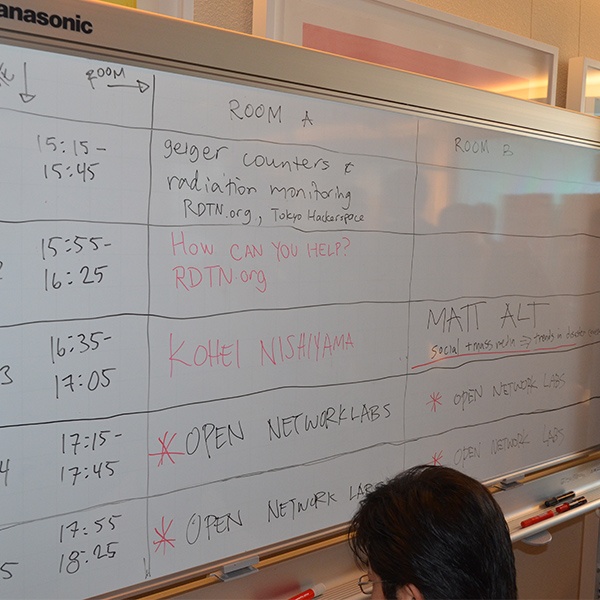 Panasonic
ROOM
ROOM A
ROOM B
15:15-
15:45
geiger counters &
radiation monitoring
RDTN.org, Tokyo Hackerspace
15:55-
16:25
How CAN YOU HELP?
RDTN.org
3
16:35-
17:05
KOHEI NISHIYAMA
MATT ALT
social + mass media → trends in disaster
4
17:15-
17:45
* OPEN NETWORK LABS
* OPEN NETWORK LABS
5
17:55
18:25
* OPEN NETWORK LABS
* OPEN NETWORK LABS